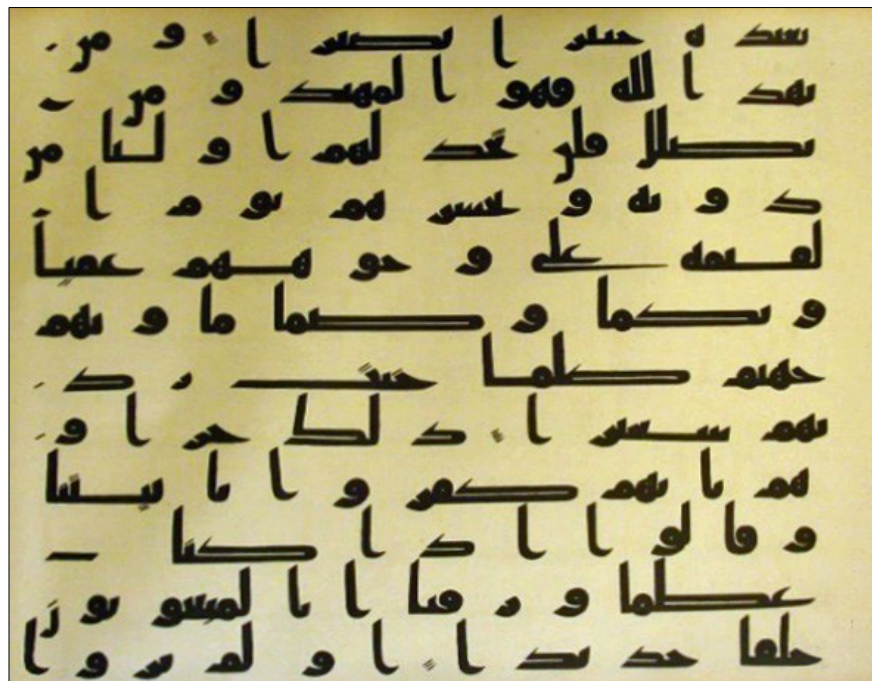 بعبده خبيرا بصيرا ومن
يهد الله فهو المهتد ومن
يضلل فلن تجد لهم اوليا من
دونه ونحشرهم يوم ا
لقيمه على وجوههم عميا
وبكما وصما ماويهم
جهنم كلما خبت زد
نهم سعيرا ذلك جزاو
هم بانهم كفروا بايتنا
وقالوا اذا كنا
عظما ورفتا انا لمبعوثون
خلقا جديدا اولم يروا